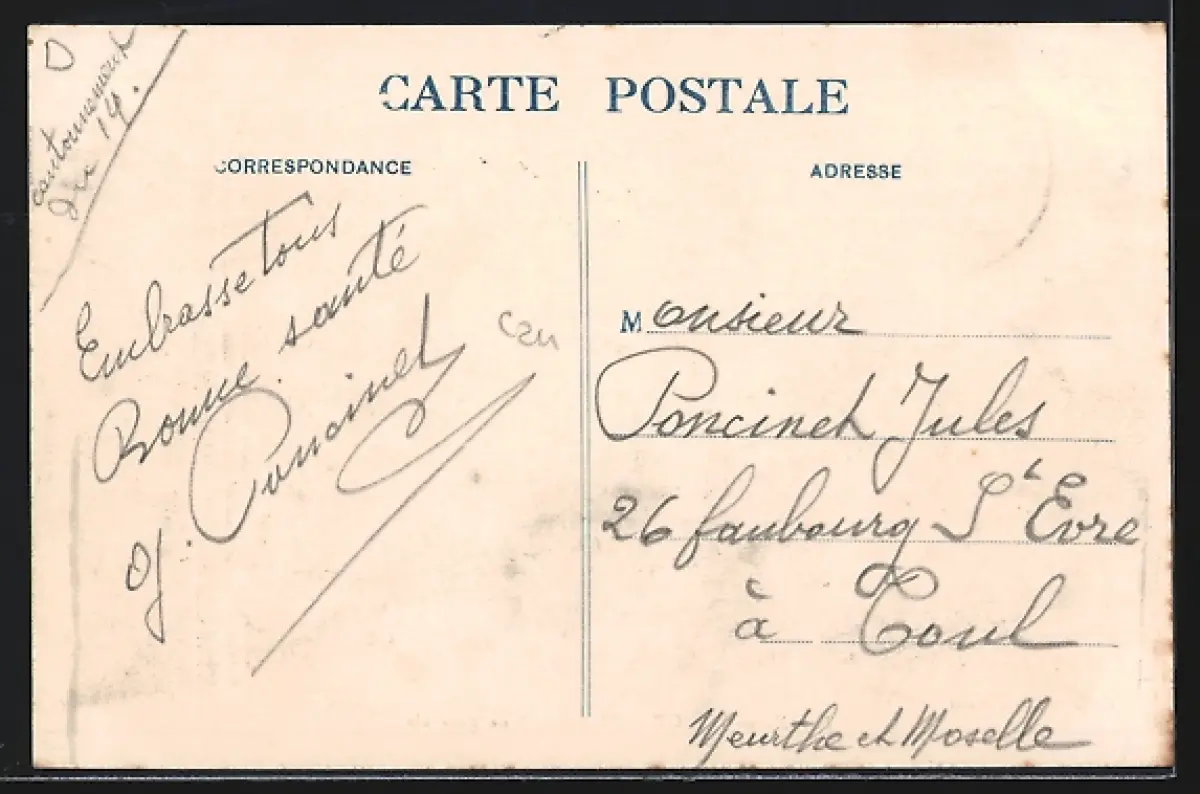 D
cantonnement
du 19.
CARTE POSTALE
CORRESPONDANCE
Embrasse tous
Bonne santé
J. Poncinet
ADRESSE
Monsieur
Poncinet Jules
26 faubourg St Evre
à Toul
Meurthe et Moselle